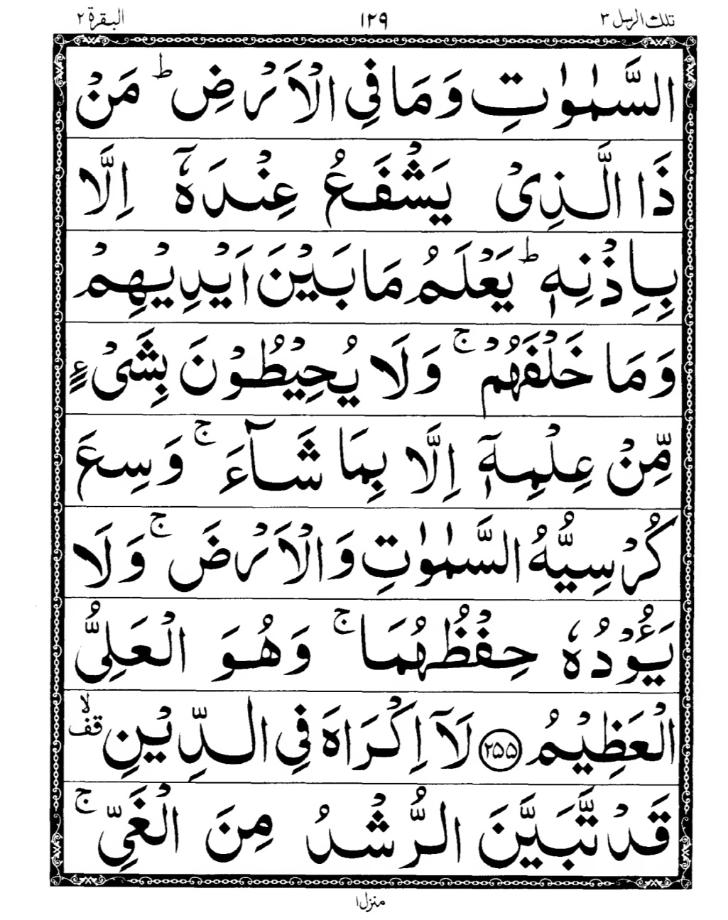 تلك الرسل ٣ ١٢٩ البقرة ٢
السَّمٰوٰتِ وَمَا فِى الْاَرْضِ ؕ مَنْ
ذَا الَّذِىْ يَشْفَعُ عِنْدَهٗۤ اِلَّا
بِاِذْنِهٖ ؕ يَعْلَمُ مَا بَيْنَ اَيْدِيْهِمْ
وَمَا خَلْفَهُمْ ۚ وَلَا يُحِيْطُوْنَ بِشَىْءٍ
مِّنْ عِلْمِهٖۤ اِلَّا بِمَا شَآءَ ۚ وَسِعَ
كُرْسِيُّهُ السَّمٰوٰتِ وَالْاَرْضَ ۚ وَلَا
يَـُٔوْدُهٗ حِفْظُهُمَا ۚ وَهُوَ الْعَلِىُّ
الْعَظِيْمُ ﴿٢٥٥﴾ لَاۤ اِكْرَاهَ فِى الدِّيْنِ لا قف
قَدْ تَّبَيَّنَ الرُّشْدُ مِنَ الْغَىِّ ۚ
منزل ١